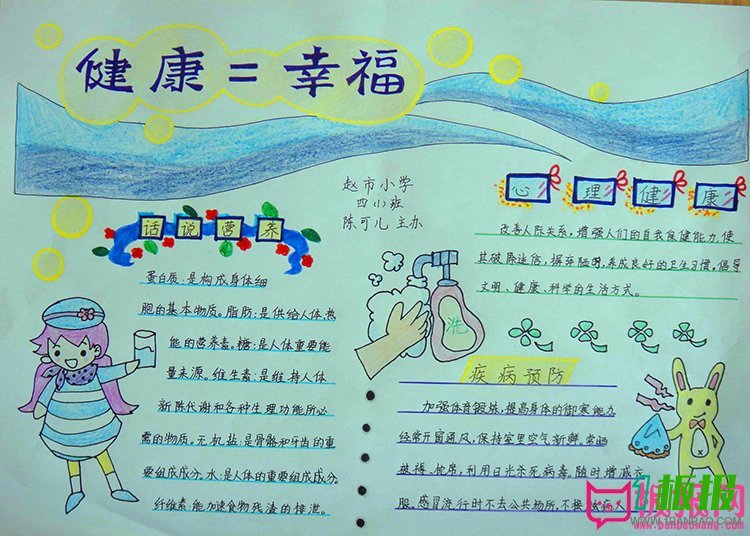 健康=幸福
赵市小学
四(1)班
陈可儿 主办
话说营养
蛋白质:是构成身体细
胞的基本物质。脂肪:是供给人体热
能的营养素。糖:是人体重要能
量来源。维生素:是维持人体
新陈代谢和各种生理功能所必
需的物质。无机盐:是骨骼和牙齿的重
要组成成分。水:是人体的重要组成成分。
纤维素:能加速食物残渣的排泄。
洗
心理健康
改善人际关系,增强人们的自我保健能力,使
其破除迷信,摒弃陋习,养成良好的卫生习惯,倡导
文明、健康、科学的生活方式。
疾病预防
加强体育锻炼,提高身体的御寒能力
经常开窗通风,保持室里空气新鲜。常晒
被褥、枕席,利用日光杀死病毒。随时增减衣
服。感冒流行时不去公共场所,不接
病人
板报
www.banbaowang.com